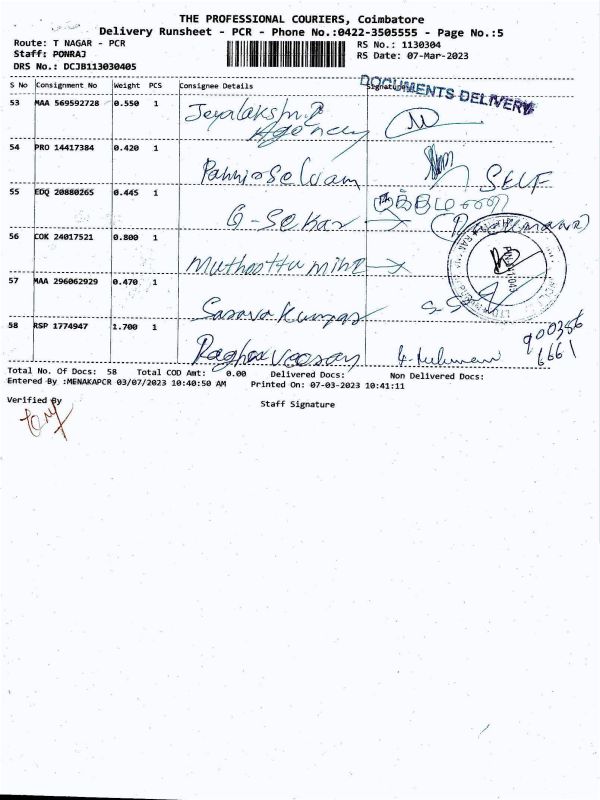 THE PROFESSIONAL COURIERS, Coimbatore
Delivery Runsheet - PCR - Phone No.:0422-3505555 - Page No.:5
Route: T NAGAR - PCR
Staff: PONRAJ
DRS No.: DCJB113030405
RS No.: 1130304
RS Date: 07-Mar-2023
S No Consignment No Weight PCS Consignee Details Signature
DOCUMENTS DELIVERY
53 MAA 569592728 0.550 1
Agency
54 PRO 14417384 0.420 1 SELF
55 EDQ 20880265 0.445 1 G-Sekar
56 COK 24017521 0.800 1
57 MAA 296062929 0.470 1 Sarava Kumar
58 RSP 1774947 1.700 1
900386
6661
Total No. Of Docs: 58 Total COD Amt: 0.00 Delivered Docs: Non Delivered Docs:
Entered By :MENAKAPCR 03/07/2023 10:40:50 AM Printed On: 07-03-2023 10:41:11
Verified By
Staff Signature